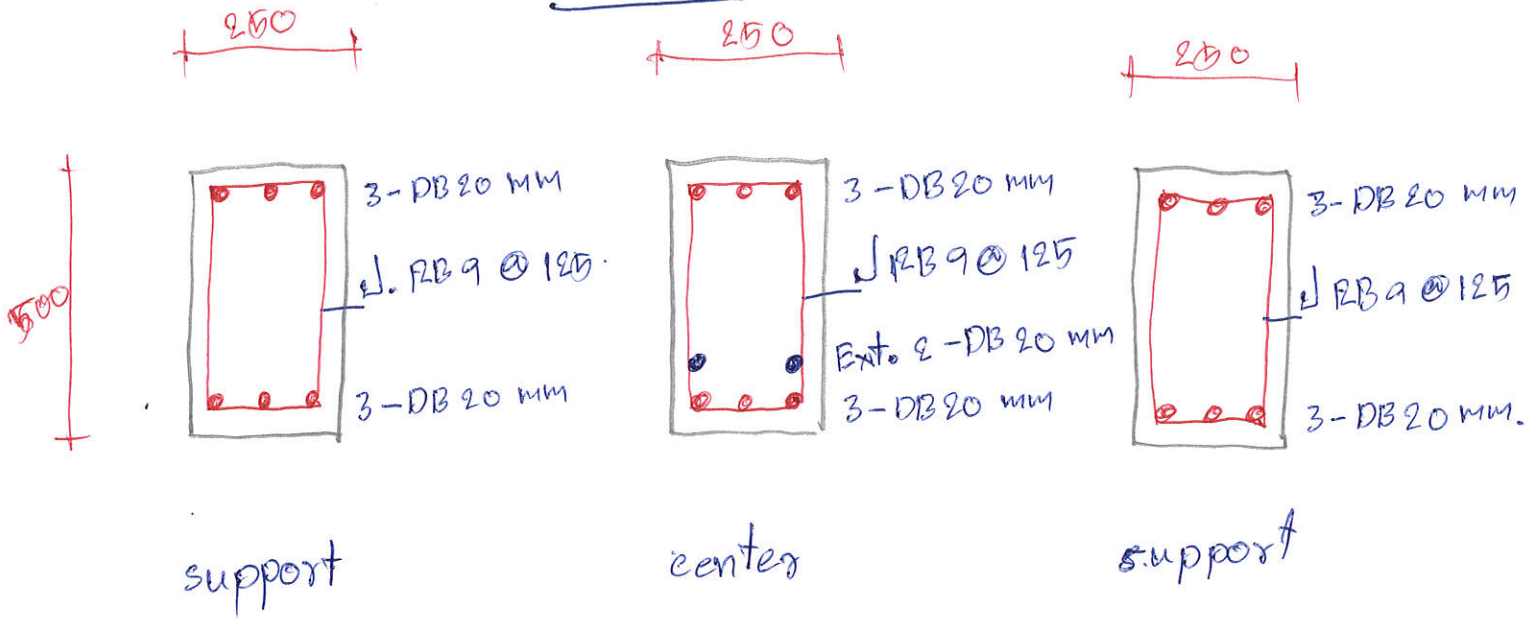 250
250
250
500
3-DB20 mm
ป. RB9 @ 125.
3-DB20 mm
support
3-DB20 mm
ป RB9 @ 125
Ext. 2-DB20 mm
3-DB20 mm
center
3-DB20 mm
ป RB9 @ 125
3-DB20 mm.
support